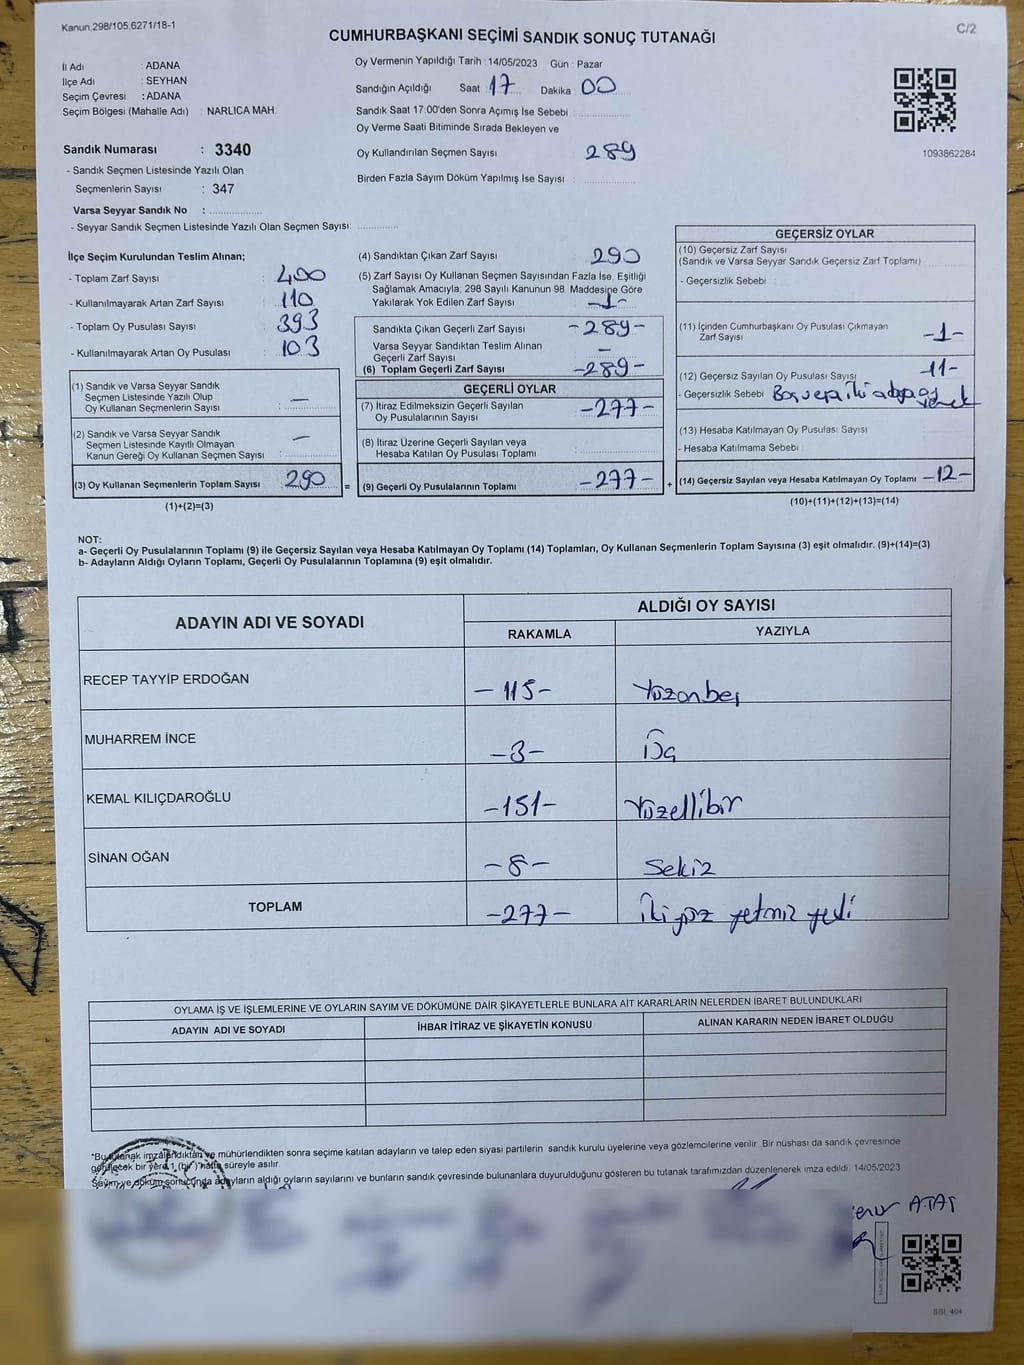 Kanun 298/105,6271/18-1
C/2
CUMHURBAŞKANI SEÇİMİ SANDIK SONUÇ TUTANAĞI
İl Adı : ADANA
İlçe Adı : SEYHAN
Seçim Çevresi : ADANA
Seçim Bölgesi (Mahalle Adı) : NARLICA MAH.
Oy Vermenin Yapıldığı Tarih : 14/05/2023 Gün : Pazar
Sandığın Açıldığı Saat 17 Dakika 00
Sandık Saat 17.00'den Sonra Açımış İse Sebebi :
Oy Verme Saati Bitiminde Sırada Bekleyen ve
Oy Kullandırılan Seçmen Sayısı 289
Birden Fazla Sayım Döküm Yapılmış İse Sayısı :
1093862284
Sandık Numarası : 3340
- Sandık Seçmen Listesinde Yazılı Olan
Seçmenlerin Sayısı : 347
Varsa Seyyar Sandık No :
- Seyyar Sandık Seçmen Listesinde Yazılı Olan Seçmen Sayısı:
İlçe Seçim Kurulundan Teslim Alınan;
- Toplam Zarf Sayısı : 400
- Kullanılmayarak Artan Zarf Sayısı : 110
- Toplam Oy Pusulası Sayısı : 393
- Kullanılmayarak Artan Oy Pusulası : 103
(1) Sandık ve Varsa Seyyar Sandık
Seçmen Listesinde Yazılı Olup
Oy Kullanan Seçmenlerin Sayısı : —
(2) Sandık ve Varsa Seyyar Sandık
Seçmen Listesinde Kayıtlı Olmayan
Kanun Gereği Oy Kullanan Seçmen Sayısı : —
(3) Oy Kullanan Seçmenlerin Toplam Sayısı 290 =
(1)+(2)=(3)
(4) Sandıktan Çıkan Zarf Sayısı 290
(5) Zarf Sayısı Oy Kullanan Seçmen Sayısından Fazla İse, Eşitliği
Sağlamak Amacıyla; 298 Sayılı Kanunun 98. Maddesine Göre
Yakılarak Yok Edilen Zarf Sayısı -1-
Sandıkta Çıkan Geçerli Zarf Sayısı -289-
Varsa Seyyar Sandıktan Teslim Alınan
Geçerli Zarf Sayısı —
(6) Toplam Geçerli Zarf Sayısı -289-
GEÇERLİ OYLAR
(7) İtiraz Edilmeksizin Geçerli Sayılan
Oy Pusulalarının Sayısı -277-
(8) İtiraz Üzerine Geçerli Sayılan veya
Hesaba Katılan Oy Pusulası Toplamı
(9) Geçerli Oy Pusulalarının Toplamı -277- +
GEÇERSİZ OYLAR
(10) Geçersiz Zarf Sayısı
(Sandık ve Varsa Seyyar Sandık Geçersiz Zarf Toplamı)
- Geçersizlik Sebebi :
(11) İçinden Cumhurbaşkanı Oy Pusulası Çıkmayan
Zarf Sayısı -1-
(12) Geçersiz Sayılan Oy Pusulası Sayısı -11-
- Geçersizlik Sebebi Boş veya iki adaya oy vermek
(13) Hesaba Katılmayan Oy Pusulası Sayısı
- Hesaba Katılmama Sebebi
(14) Geçersiz Sayılan veya Hesaba Katılmayan Oy Toplamı -12-
(10)+(11)+(12)+(13)=(14)
NOT:
a- Geçerli Oy Pusulalarının Toplamı (9) ile Geçersiz Sayılan veya Hesaba Katılmayan Oy Toplamı (14) Toplamları, Oy Kullanan Seçmenlerin Toplam Sayısına (3) eşit olmalıdır. (9)+(14)=(3)
b- Adayların Aldığı Oyların Toplamı, Geçerli Oy Pusulalarının Toplamına (9) eşit olmalıdır.
ADAYIN ADI VE SOYADI
ALDIĞI OY SAYISI
RAKAMLA YAZIYLA
RECEP TAYYİP ERDOĞAN -115- Yüzonbeş
MUHARREM İNCE -3- Üç
KEMAL KILIÇDAROĞLU -151- Yüzellibir
SİNAN OĞAN -8- Sekiz
TOPLAM -277- İki yüz yetmiş yedi
OYLAMA İŞ VE İŞLEMLERİNE VE OYLARIN SAYIM VE DÖKÜMÜNE DAİR ŞİKAYETLERLE BUNLARA AİT KARARLARIN NELERDEN İBARET BULUNDUKLARI
ADAYIN ADI VE SOYADI İHBAR İTİRAZ VE ŞİKAYETİN KONUSU ALINAN KARARIN NEDEN İBARET OLDUĞU
*Bu tutanak imzalandıktan ve mühürlendikten sonra seçime katılan adayların ve talep eden siyasi partilerin sandık kurulu üyelerine veya gözlemcilerine verilir. Bir nüshası da sandık çevresinde
görülecek bir yere 1 (bir) hafta süreyle asılır.
Sayım ve döküm sonucunda adayların aldığı oyların sayılarını ve bunların sandık çevresinde bulunanlara duyurulduğunu gösteren bu tutanak tarafımızdan düzenlenerek imza edildi. 14/05/2023
SBI_404